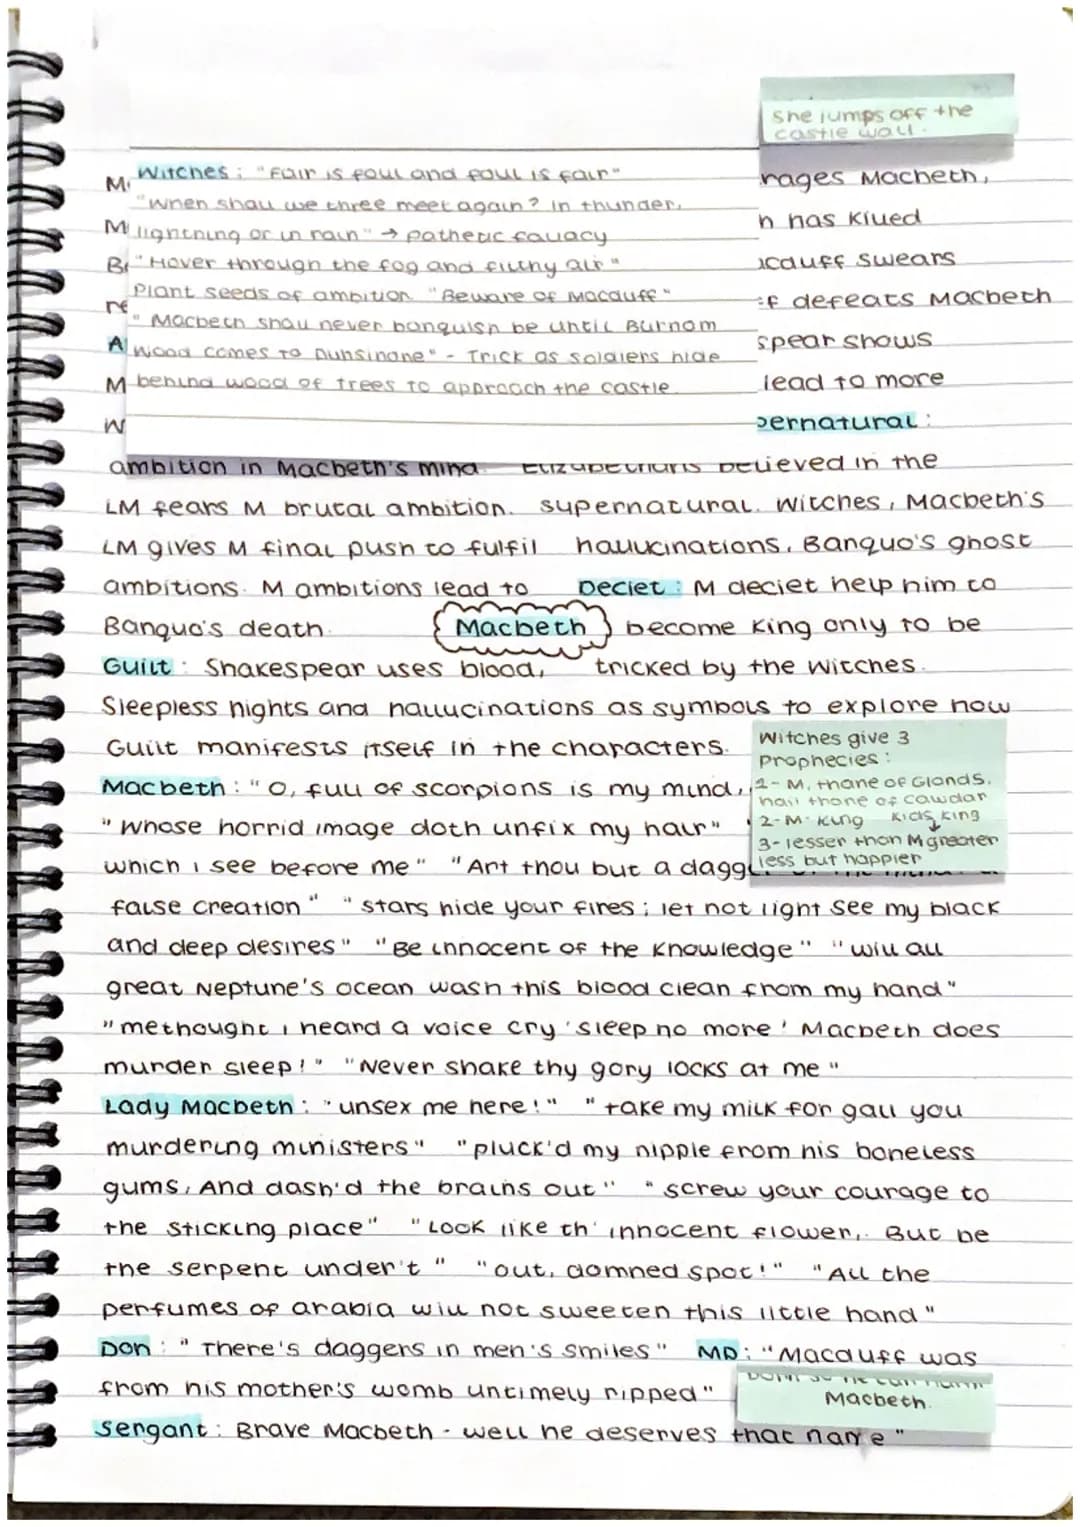 she jumps off the
castle wall.
Witches: "Fair is foul and foul is fair"
"When shall we three meet again? In thunder,
lightning or in rain" → pathetic fallacy
"Hover through the fog and filthy air"
Plant seeds of ambition "Beware of Macduff"
"Macbeth shall never banquish be until Burnam
Wood comes to Dunsinane" - Trick as soldiers hide
behind wood of trees to approach the castle
rages Macbeth,
n has killed
acduff swears
ef defeats Macbeth
spear shows
lead to more
pernatural:
ambition in Macbeth's mind. Elizabethans believed in the
LM fears M brutal ambition. supernatural. Witches, Macbeth's
LM gives M final push to fulfil hallucinations, Banquo's ghost
ambitions. M ambitions lead to Deciet: M deciet help him to
Banquo's death. Macbeth become King only to be
Guilt: Shakespear uses blood, tricked by the Witches.
Sleepless nights and hallucinations as symbols to explore how
Guilt manifests itself in the characters.
Witches give 3
prophecies:
1- M, thane of Glands.
hail thane of cawdar
2- M. King Kids King
3- lesser than M greater
less but happier
Macbeth: "O, full of scorpions is my mind,
"Whose horrid image doth unfix my hair"
which I see before me" "Art thou but a dagg
false creation" "stars hide your fires; let not light see my black
and deep desires" "Be innocent of the knowledge" "will all
great Neptune's ocean wash this blood clean from my hand"
"methought I heard a voice cry 'sleep no more! Macbeth does
murder sleep!" "Never shake thy gory locks at me"
Lady Macbeth: "unsex me here!" "take my milk for gall you
murdering ministers" "pluck'd my nipple from his boneless
gums, And dash'd the brains out" "screw your courage to
the sticking place" "Look like th' innocent flower, But be
the serpent under't" "out, damned spot!" "All the
perfumes of arabia will not sweeten this little hand"
Don: "There's daggers in men's smiles" MD: "Macduff was
from his mother's womb untimely ripped"
Macbeth.
Sergant: Brave Macbeth - well he deserves that name"